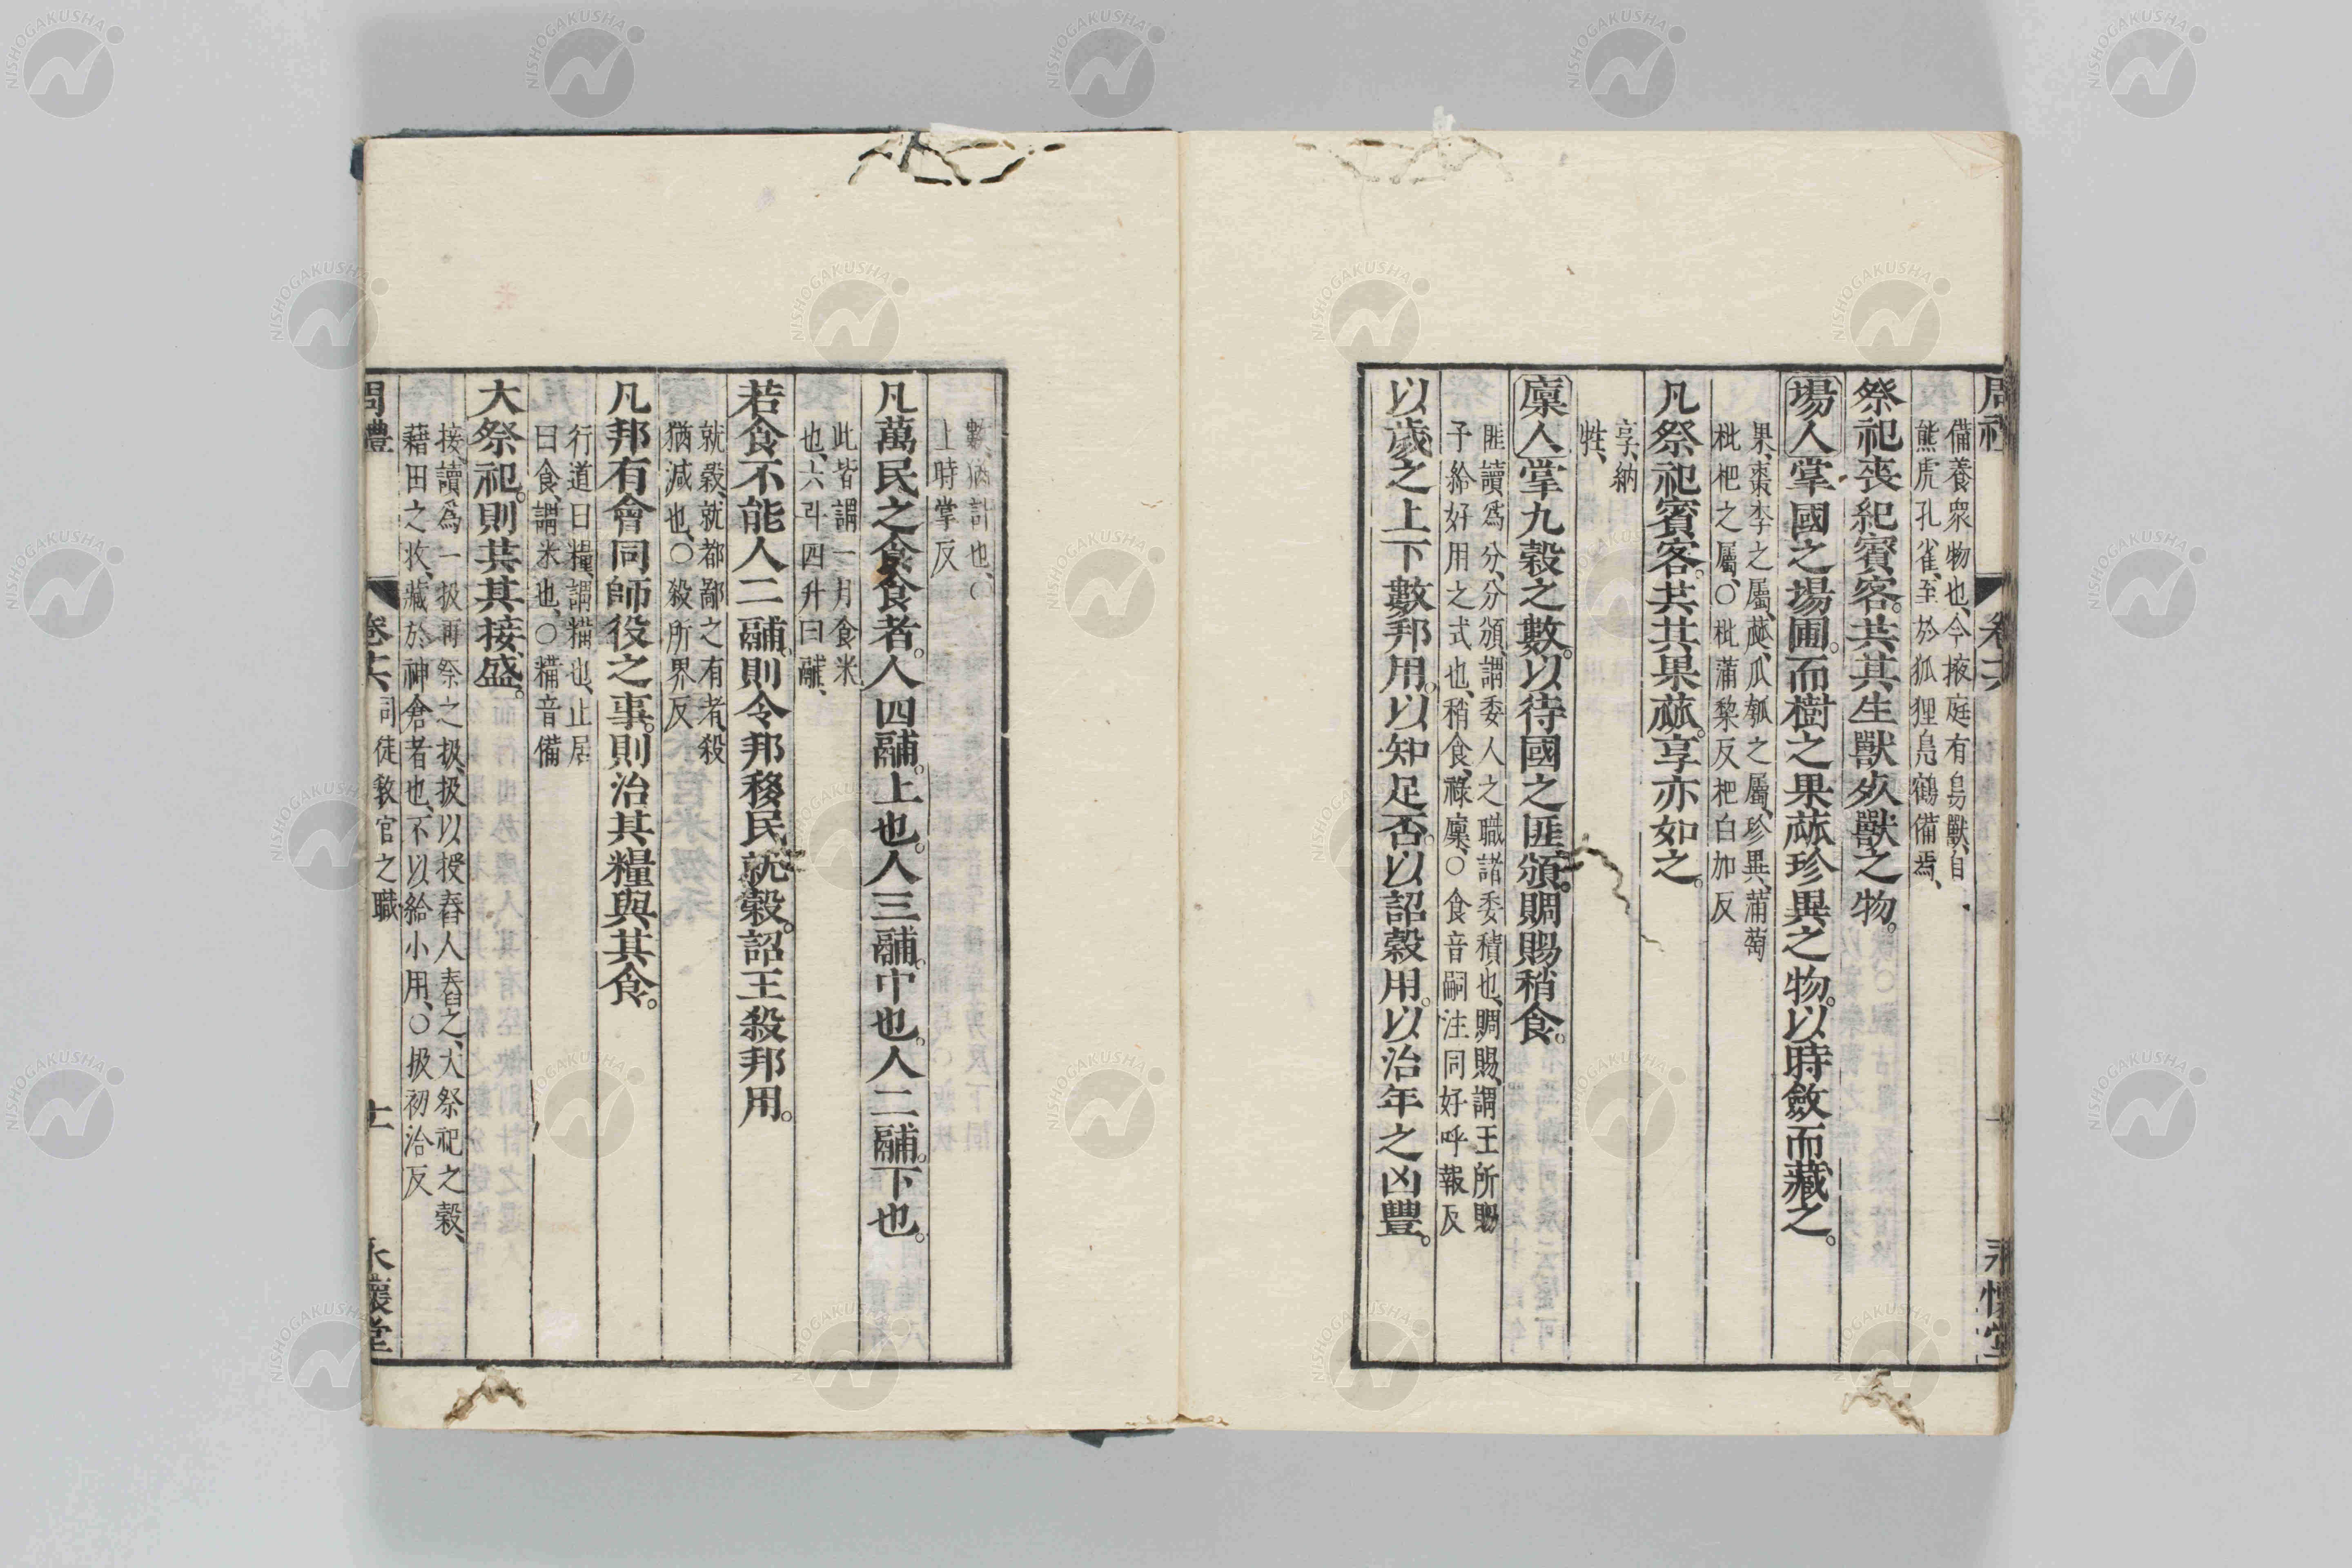 備養衆物也、今掖庭有鳥獸、自
熊虎孔雀、至於狐狸鳧鶴備焉、
祭祀喪紀賓客。共其生獸死獸之物。
場人掌國之場圃。而樹之果蓏珍異之物。以時斂而藏之。
果、棗李之屬、蓏、瓜瓠之屬、珍異、蒲萄
枇杷之屬、○枇蒲黎反杷白加反
凡祭祀賓客。共其果蓏。享亦如之。
享、納
牲、
廩人掌九穀之數。以待國之匪頒。賙賜稍食。
匪讀爲分、分頒、謂委人之職諸委積也、賙賜、謂王所賜
予給好用之式也、稍食、祿廩、○食音嗣注同好呼報反
以歲之上下數邦用。以知足否。以詔穀用。以治年之凶豐。
數、猶計也、○
上時掌反
凡萬民之食食者。人四鬴。上也。人三鬴。中也。人二鬴。下也。
此皆謂一月食米
也、六斗四升曰鬴、
若食不能人二鬴、則令邦移民就穀。詔王殺邦用。
就穀、就都鄙之有者、殺
猶減也、○殺所界反
凡邦有會同師役之事。則治其糧與其食。
行道曰糧、謂糒也、止居
曰食、謂米也、○糒音備
大祭祀。則共其接盛。
接、讀爲一扱再祭之扱、扱以授舂人舂之、大祭祀之穀、
藉田之收、藏於神倉者也、不以給小用、○扱初洽反
周禮 卷十六、司徒敎官之職 十一 永懷堂
NISHOGAKUSHA